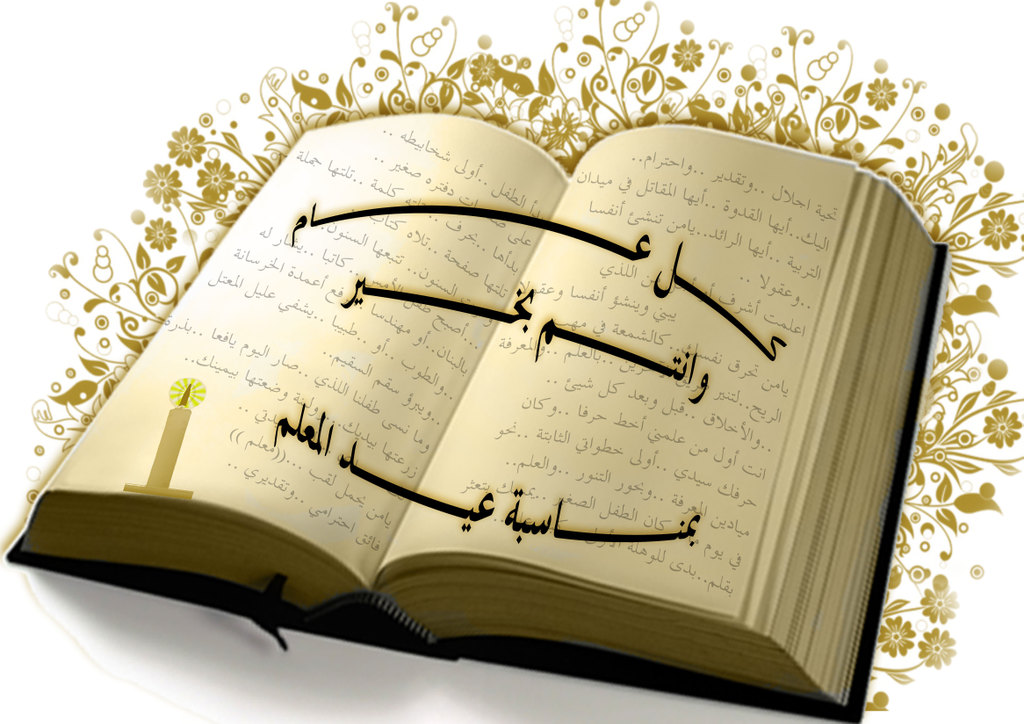 كل عام
وانتم بخير
بمناسبة عيد المعلم
تحية اجلال ..وتقدير ..واحترام..
اليك..أيها القدوة ..أيها المقاتل في ميدان
التربية ..أيها الرائد...يامن تنشئ أنفسا
..وعقولا ..
اعلمت أشرف اللذي
يبني وينشؤ أنفسا وعقولا
يامن تحرق نفسك.. كالشمعة في مهب
الريح..لتنير ..بالعلم ..والمعرفة
..والأخلاق ..قبل وبعد كل شيئ ..
انت أول من علمني أخط حرفا ..وكان
حرفك سيدي ..أولى خطواتي الثابتة ..نحو
ميادين المعرفة ..وبحور التنور ..والعلم..
في يوم كان الطفل الصغير يتعثر
بقلم..بدى للوهلة الأولى
بدأ الطفل ..أولى شخابيطه ..
على دفتره صغير ..
بدأها ..بحرف كلمة ..تلتها جملة
تلتها صفحة ..تلاه كتاب
السنون.. تتبعها السنون
..أصبح طفل كاتبا
بالبنان..أو مهندسا أعمدة الخرسانة
..والطوب ..أو طبيبا ..يشفي عليل المعتل
..ويبرؤ سقم السقيم..
وما نسى طفلنا اللذي ..صار اليوم يافعا ..بذرة
زرعتها بيديك وضعتها بيمينك..
يامن يحمل لقب ...((معلم ))
فائق احترامي ..وتقديري ..